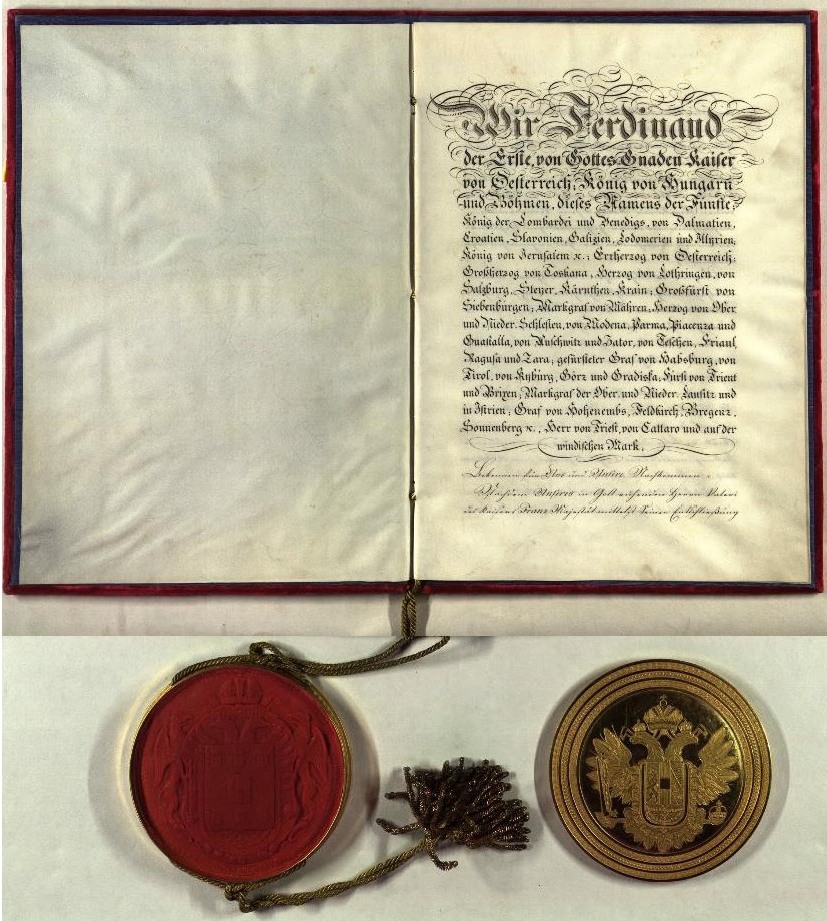 Wir Ferdinand
der Erste, von Gottes Gnaden Kaiser
von Oesterreich; König von Hungarn
und Böhmen, dieses Namens der Fünfte;
König der Lombardei und Venedigs, von Dalmatien,
Croatien, Slavonien, Galizien, Lodomerien und Illyrien;
König von Jerusalem ꝛc.; Erzherzog von Oesterreich;
Großherzog von Toskana, Herzog von Lothringen, von
Salzburg, Steyer, Kärnthen, Krain; Großfürst von
Siebenbürgen; Markgraf von Mähren; Herzog von Ober
und Nieder-Schlesien, von Modena, Parma, Piacenza und
Guastalla, von Auschwitz und Zator, von Teschen, Friaul,
Ragusa und Zara; gefürsteter Graf von Habsburg, von
Tirol, von Kyburg, Görz und Gradiska; Fürst von Trient
und Brixen; Markgraf der Ober und Nieder-Lausitz und
in Istrien; Graf von Hohenembs, Feldkirch, Bregenz,
Sonnenberg ꝛc., Herr von Triest, von Cattaro und auf der
windischen Mark,
Bekennen für Uns und Unsere Nachkommen:
Nachdem Unseres in Gott ruhenden Herrn Vaters
des Kaisers Franz Majestät mittelst Seiner Entschließung